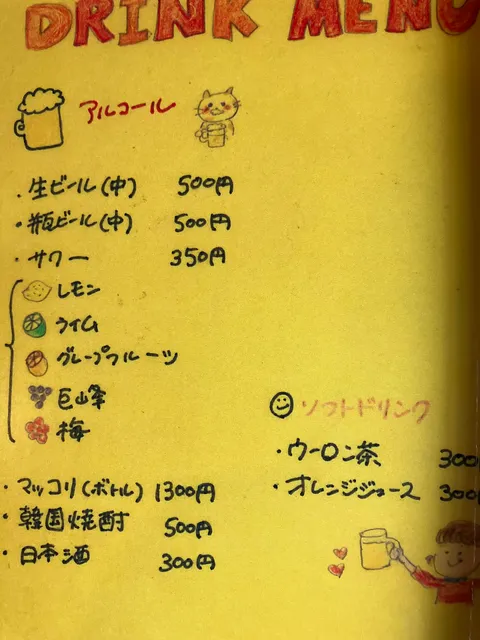 DRINK MENU
アルコール
・生ビール(中) 500円
・瓶ビール(中) 500円
・サワー 350円
レモン
ライム
グレープフルーツ
巨峰
梅
・マッコリ(ボトル) 1300円
・韓国焼酎 500円
・日本酒 300円
ソフトドリンク
・ウーロン茶 300
・オレンジジュース 300